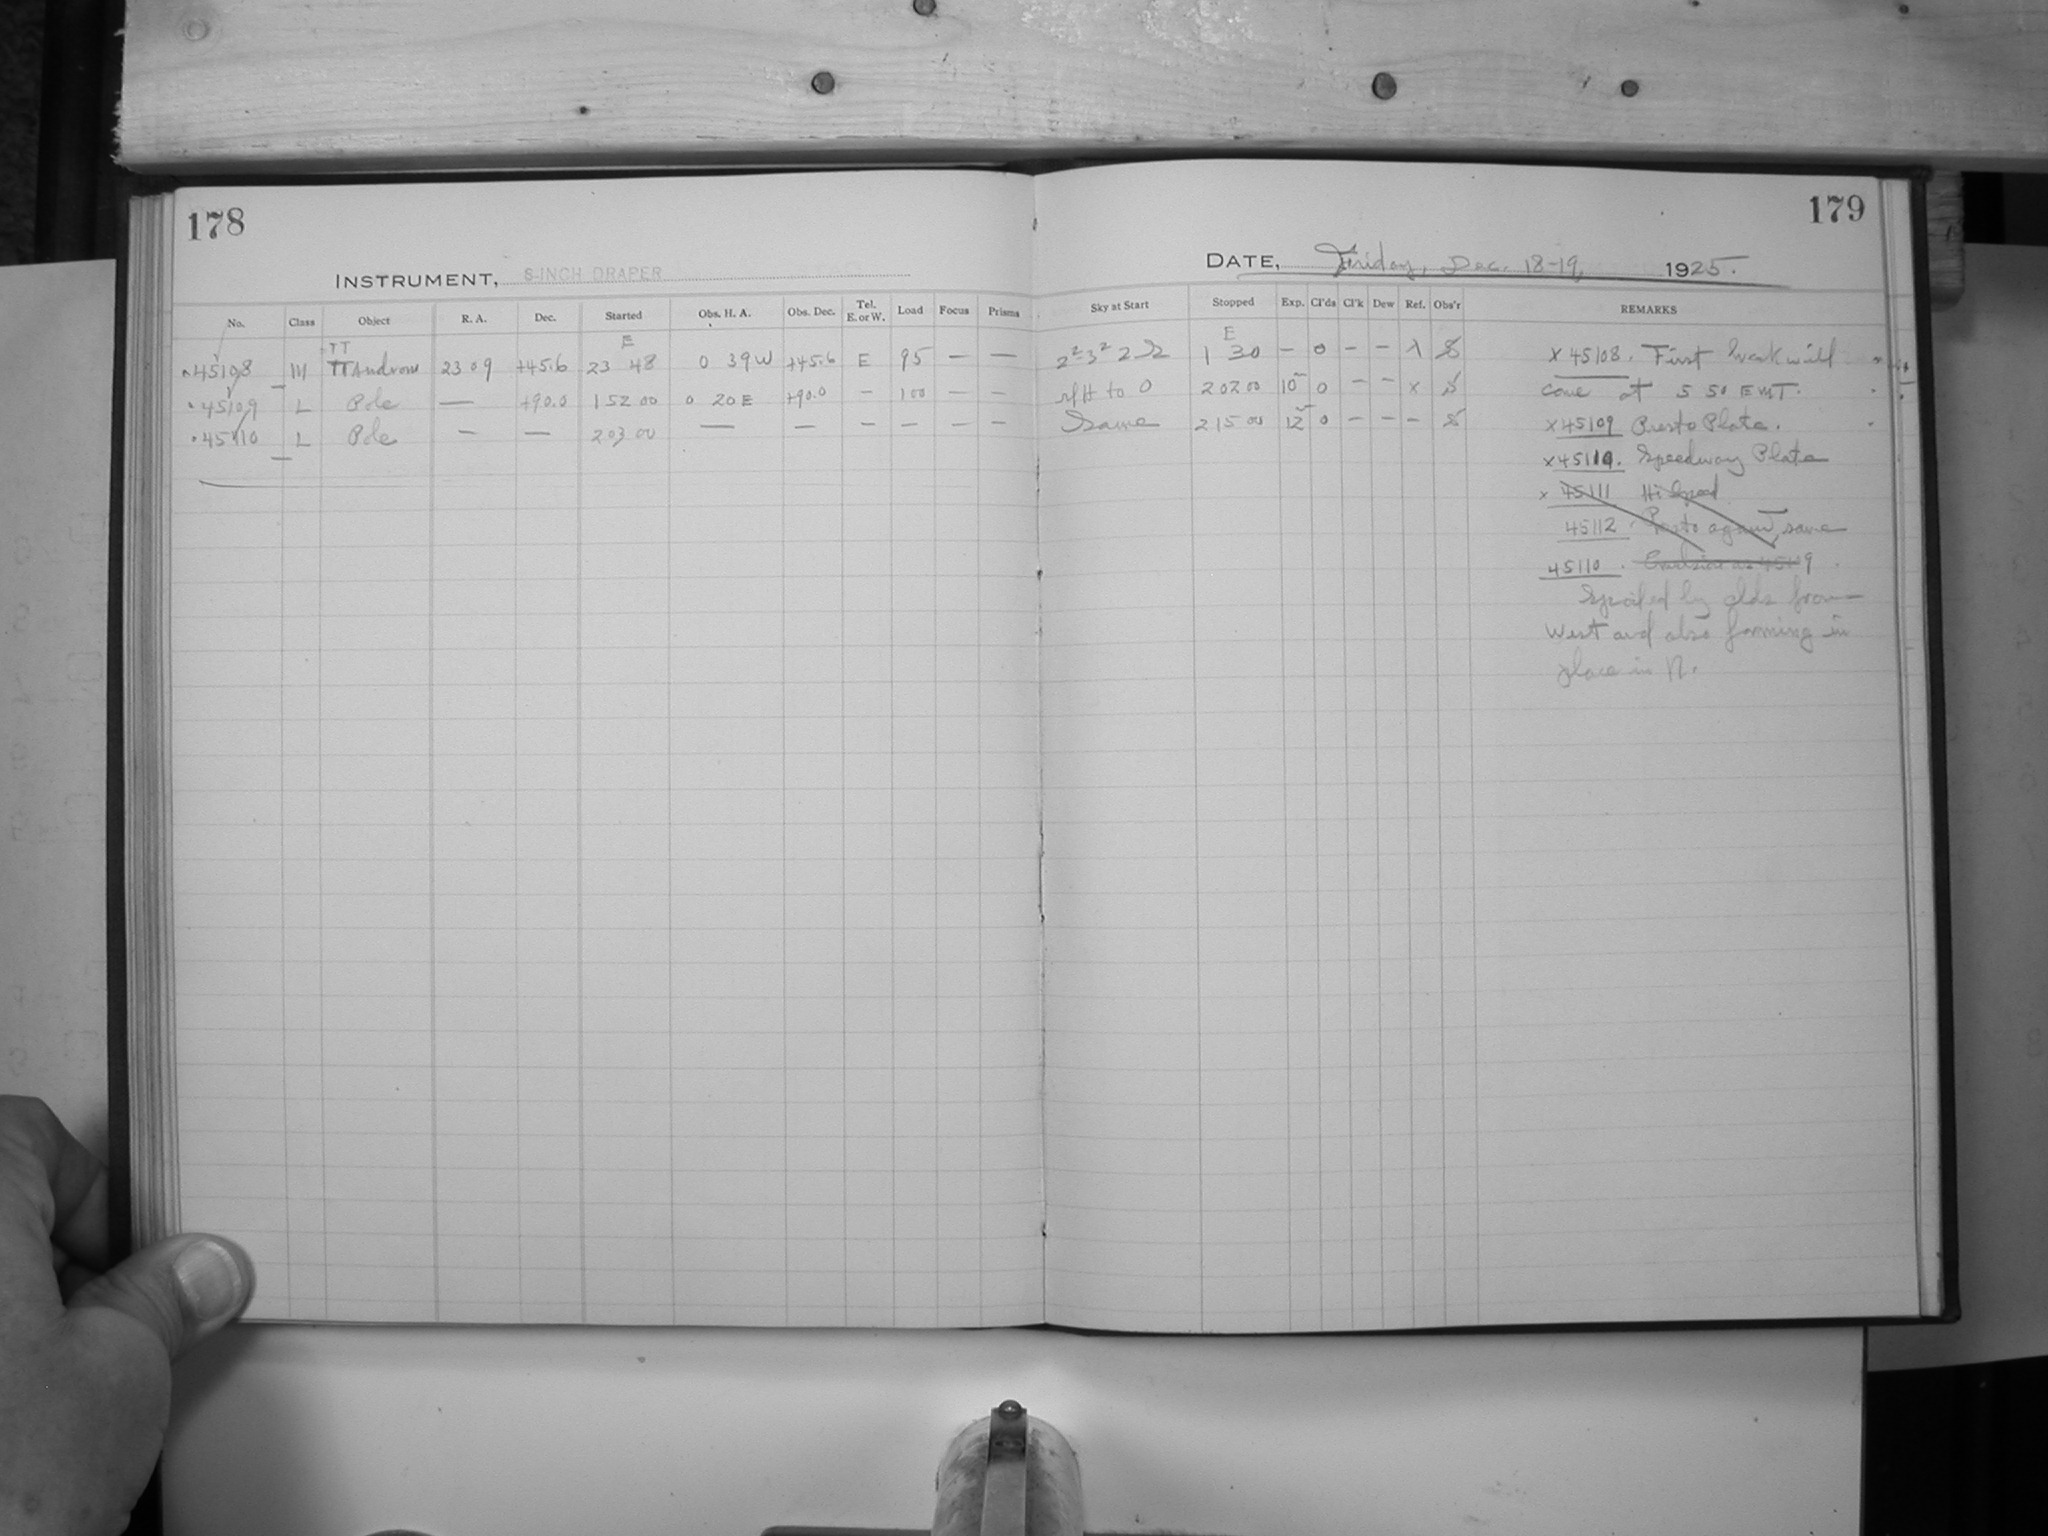 178
INSTRUMENT, 8-INCH DRAPER
No. Class Object R. A. Dec. Started Obs. H. A. Obs. Dec. Tel. E. or W. Load Focus Prisms
TT E
45108 M TT Androm 23 09 +45.6 23 48 0 39 W +45.6 E 95 — —
45109 L Pole — +90.0 1 52 00 0 20 E +90.0 — 100 — —
45110 L Pole — — 2 03 00 — — — — — —
179
DATE, Friday, Dec. 18-19, 1925.
Sky at Start Stopped Exp. Cl'ds Cl'k Dew Ref. Obs'r REMARKS
E
1 30 — 0 — —
to 0 2 02 00 10 0 — — x
Same 2 15 00 12 0 — — —
x 45108. First break will
come at 5 50 EMT.
x 45109 Presto Plate.
x 45110. Speedway Plate
x 45111 Hi Speed
45112. Presto again, same
45110. Emulsion as 45109.
Spoiled by clds from
West and also forming in
place in N.